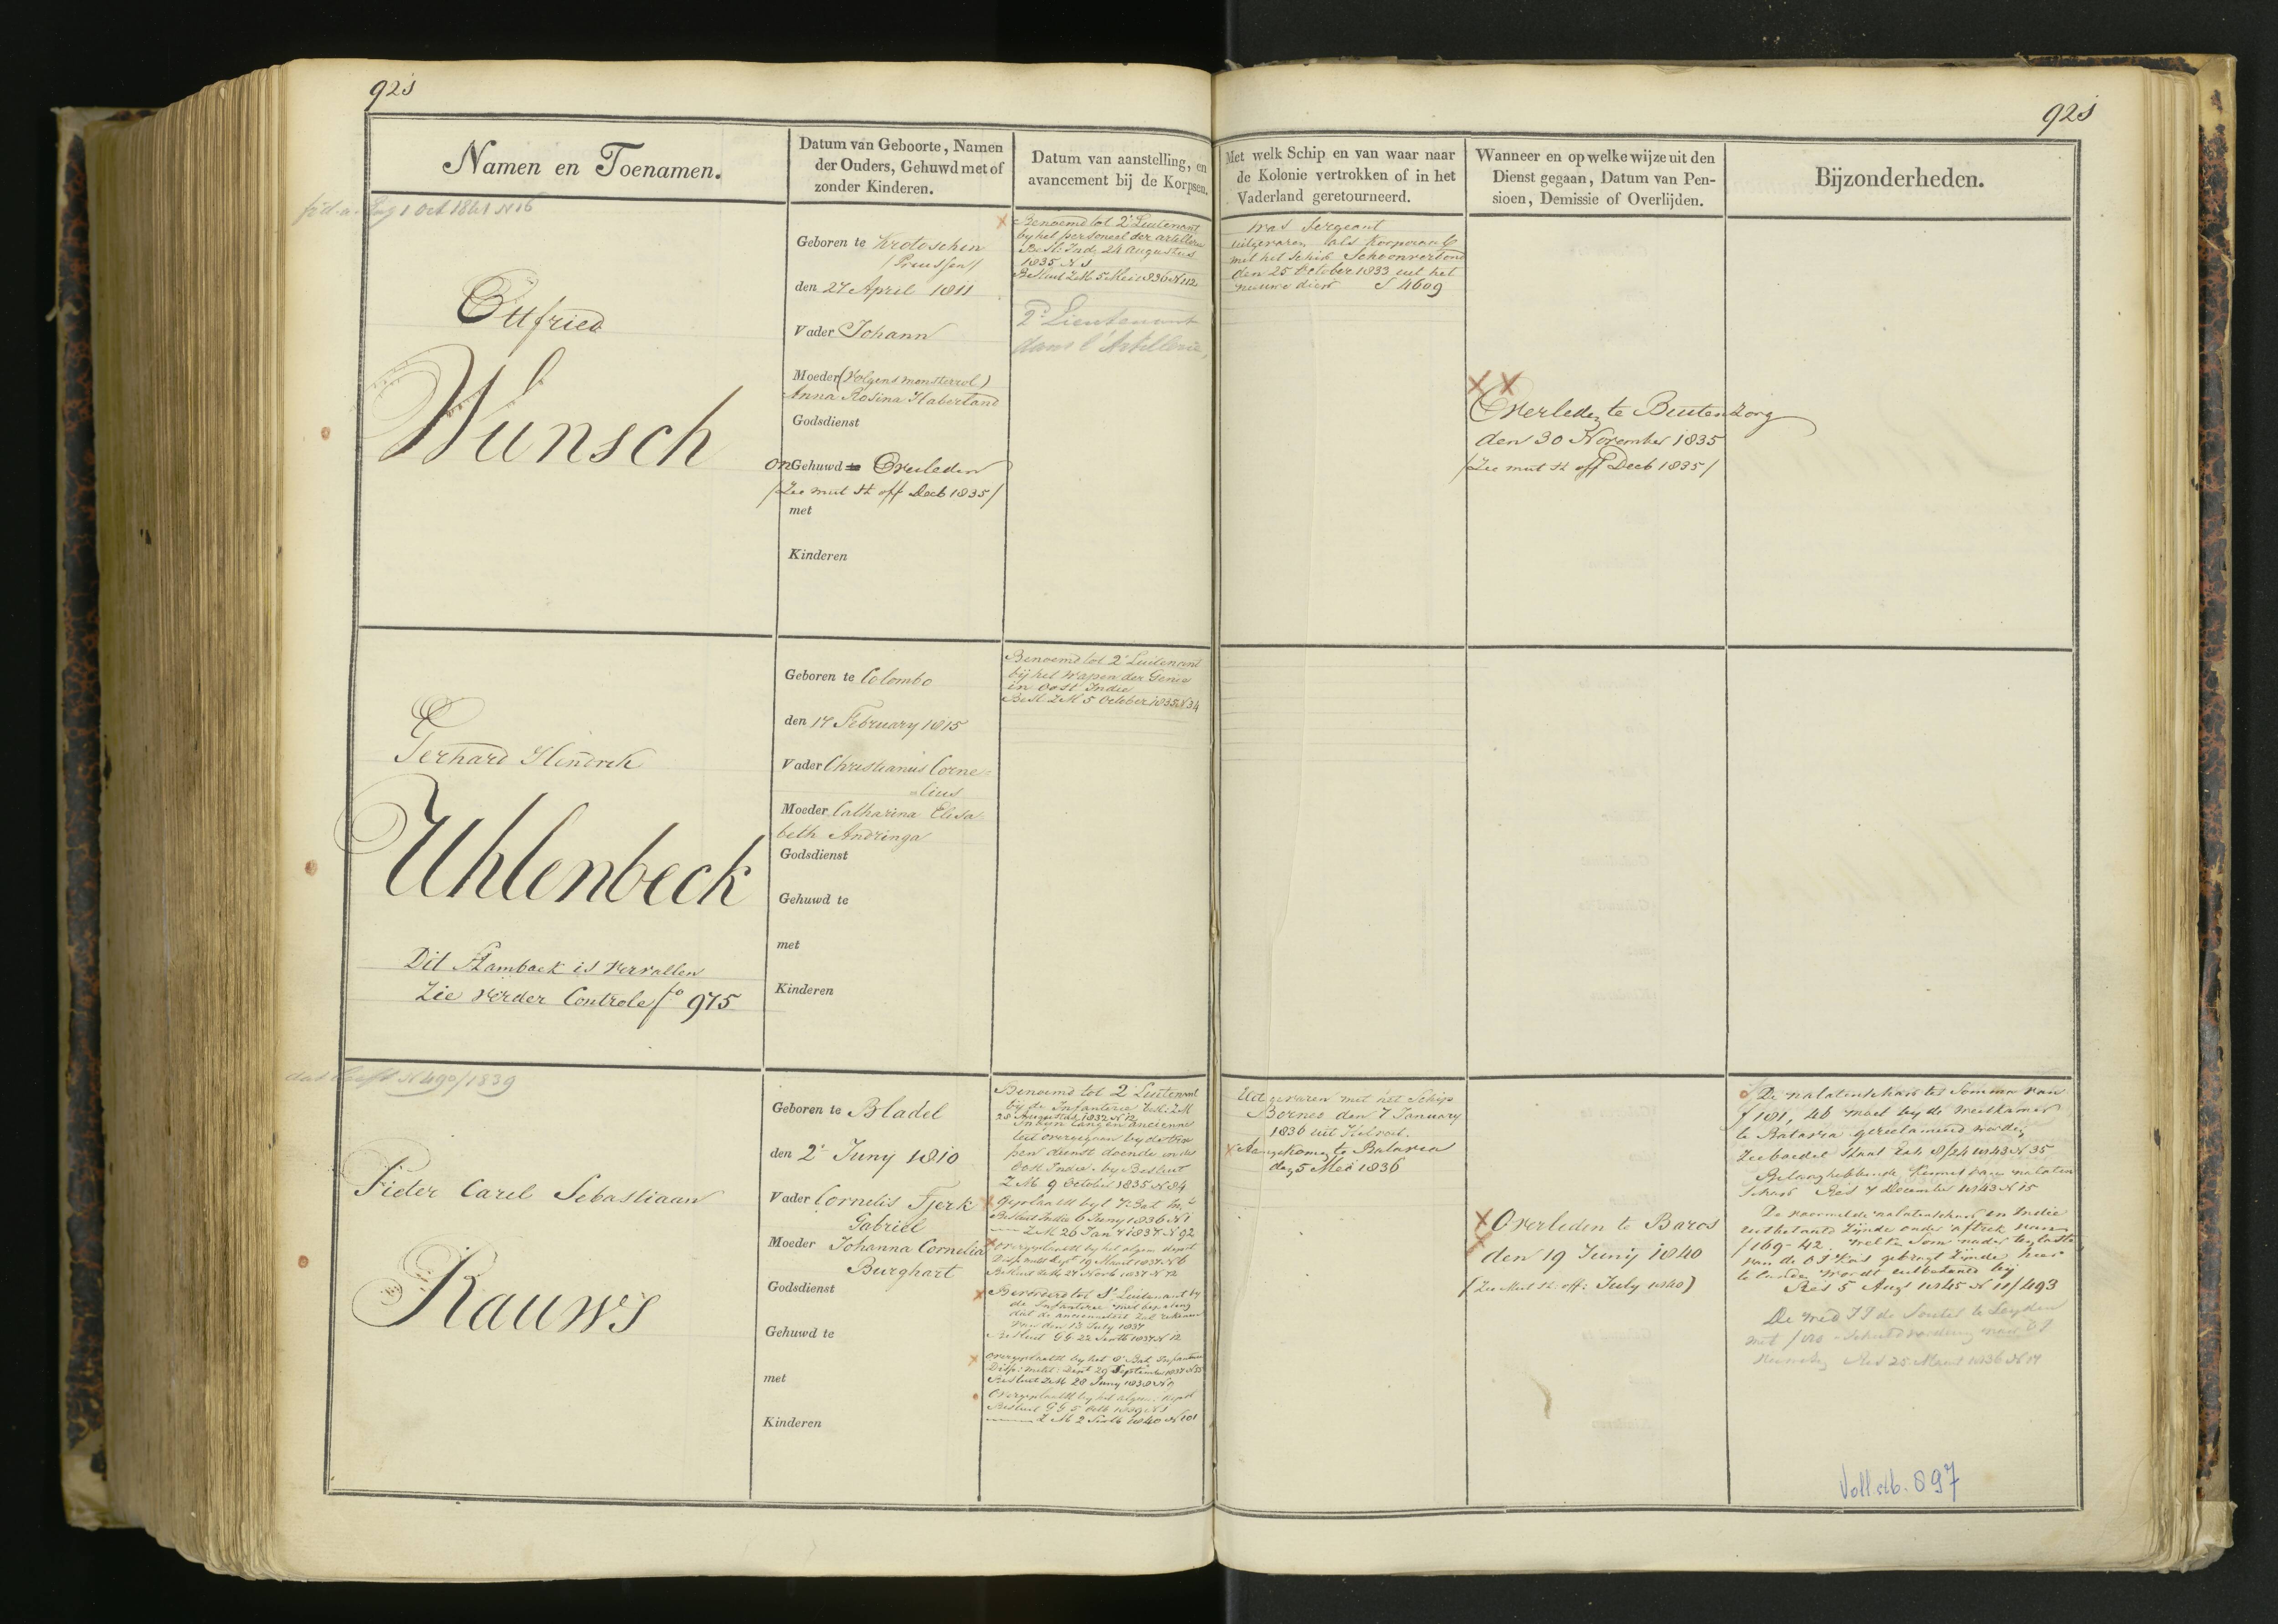 925
925
Namen en Toenamen.
Datum van Geboorte, Namen
der Ouders, Gehuwd met of
zonder Kinderen.
Datum van aanstelling, en
avancement bij de Korpsen.
Met welk Schip en van waar naar
de Kolonie vertrokken of in het
Vaderland geretourneerd.
Wanneer en op welke wijze uit den
Dienst gegaan, Datum van Pen-
sioen, Demissie of Overlijden.
Bijzonderheden.
1 Oct 1861 N 16
Ottfried
Wunsch
Geboren te Krotoschin
/Preussen/
den 27 April 1811
Vader Johann
Moeder (Volgens monsterrol)
Anna Rosina Haberland
Godsdienst
onGehuwd te Overleden
/Zie mut st off Decb 1835/
met
Kinderen
Benoemd tot 2e Luitenant
by het personeel der artillerie
Besl: Ind: 24 Augustus
1835 N 1
Besluit ZM 5 Mei 1836 N 112
2e Lieutenant
dans l'Artillerie,
was Sergeant
uitgevaren als Korporaal
met het schip Schoonverbond
den 25 October 1833 uit het
nieuwe diep S 4609
Overleden te Buitenzorg
den 30 November 1835
/Zie mut st off Decb 1835/
Gerhard Hendrik
Uhlenbeck
Dit Stamboek is vervallen
Zie verder Controle fo 975
Geboren te Colombo
den 17 February 1815
Vader Christianus Corne=
=lius
Moeder Catharina Elisa
beth Andringa
Godsdienst
Gehuwd te
met
Kinderen
Benoemd tot 2e Luitenant
bij het Wapen der Genie
in Oost Indie
Besl. ZM 5 October 1835 N 34
N 490/1839
Pieter Carel Sebastiaan
Rauws
Geboren te Bladel
den 2e Juny 1810
Vader Cornelis Tjerk
Gabriel
Moeder Johanna Cornelia
Burghart
Godsdienst
Gehuwd te
met
Kinderen
Benoemd tot 2e Luitenant
bij de Infanterie Besl: ZM
28 Augustus 1832 N 12
In zyn rang en ancienne
teit overgegaan by de troe
pen dienst doende in de
Oost Indie. by Besluit
Z M 9 October 1835 N 84
Geplaatst by t 7e Bat Inf
Besluit Indie 6 Juny 1836 N 1
ZM 26 Jan 1837 N 92
Overgeplaatst by het algem depot
19 Maart 1837 N 6
Besluit ZM 27 Novb 1837 N 72
Bevorderd tot 1e Luitenant by
de Infanterie met bepaling
dat de ancienneteit zal rekenen
van den 13 July 1837
Besluit GG 22 Septb 1837 N 12
Overgeplaatst by het 8e Bat Infanterie
Disp: milit: Dept 29 September 1837 N 55
Besluit ZM 28 Juny 1838 N 9
Overgeplaatst by het algem: depot
Besluit GG 5 Octb 1839 N 1
Z M 2 Septb 1840 N 101
Uitgevaren met het Schip
Borneo den 7 January
1836 uit Helvoet.
Aangekomen te Batavia
den 5 Mei 1836
Overleden te Baros
den 19 Junij 1840
(Zie Mut st. off: July 1840)
De nalatenschap ter Somma van
f 181,46 moet by de weeskamer
te Batavia gereclameerd worden
Zie boedel Staat
Belanghebbende Kennis van nalaten
schap Res 7 december 1843 N 15
De voormelde nalatenschap in Indie
uitbetaald zijnde onder aftrek van
f 169-42. welke Som nader ten laste
van de O I Kas gebragt zijnde hier
te lande wordt uitbetaald bij
Res 5 Aug 1845 N 11/493
te Leyden
Res 25 Maart 1836 N 14
Voll. stb. 897